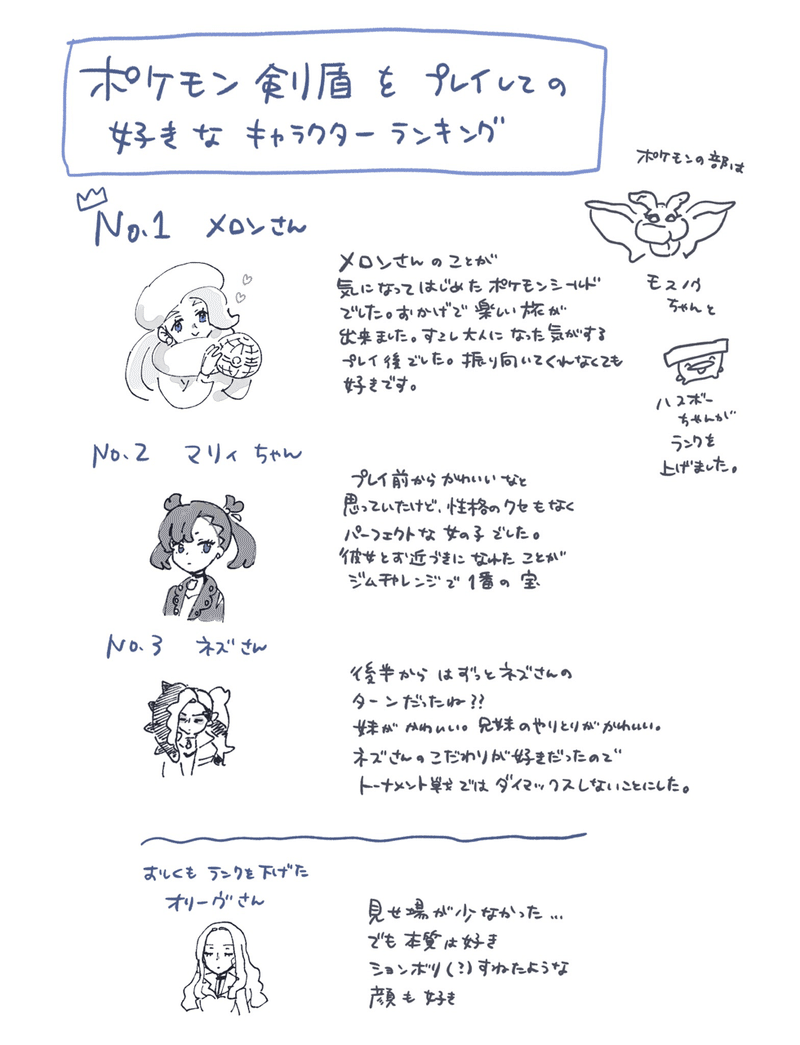 ポケモン 剣盾 を プレイしての
好きな キャラクター ランキング
No.1 メロンさん
メロンさんのことが
気になってはじめた ポケモンシールド
でした。おかげで 楽しい旅が
出来ました。すこし大人に なった気がする
プレイ後でした。振り向いてくれなくても
好きです。
ポケモンの部は
モスノウ
ちゃんと
ハスボー
ちゃんが
ランクを
上げました。
No.2 マリィちゃん
プレイ前から かわいいなと
思っていたけど、性格のクセもなく
パーフェクトな 女の子でした。
彼女とお近づきに なれたことが
ジムチャレンジで 1番の 宝
No.3 ネズさん
後半から はずっとネズさんの
ターンだったね??
妹が かわいい。兄妹のやりとりがかわいい。
ネズさんのこだわりが好きだったので
トーナメント戦では ダイマックスしないことにした。
おしくも ランクを下げた
オリーヴさん
見せ場が少なかった…
でも本質は好き
ションボリ(?)すねたような
顔も好き